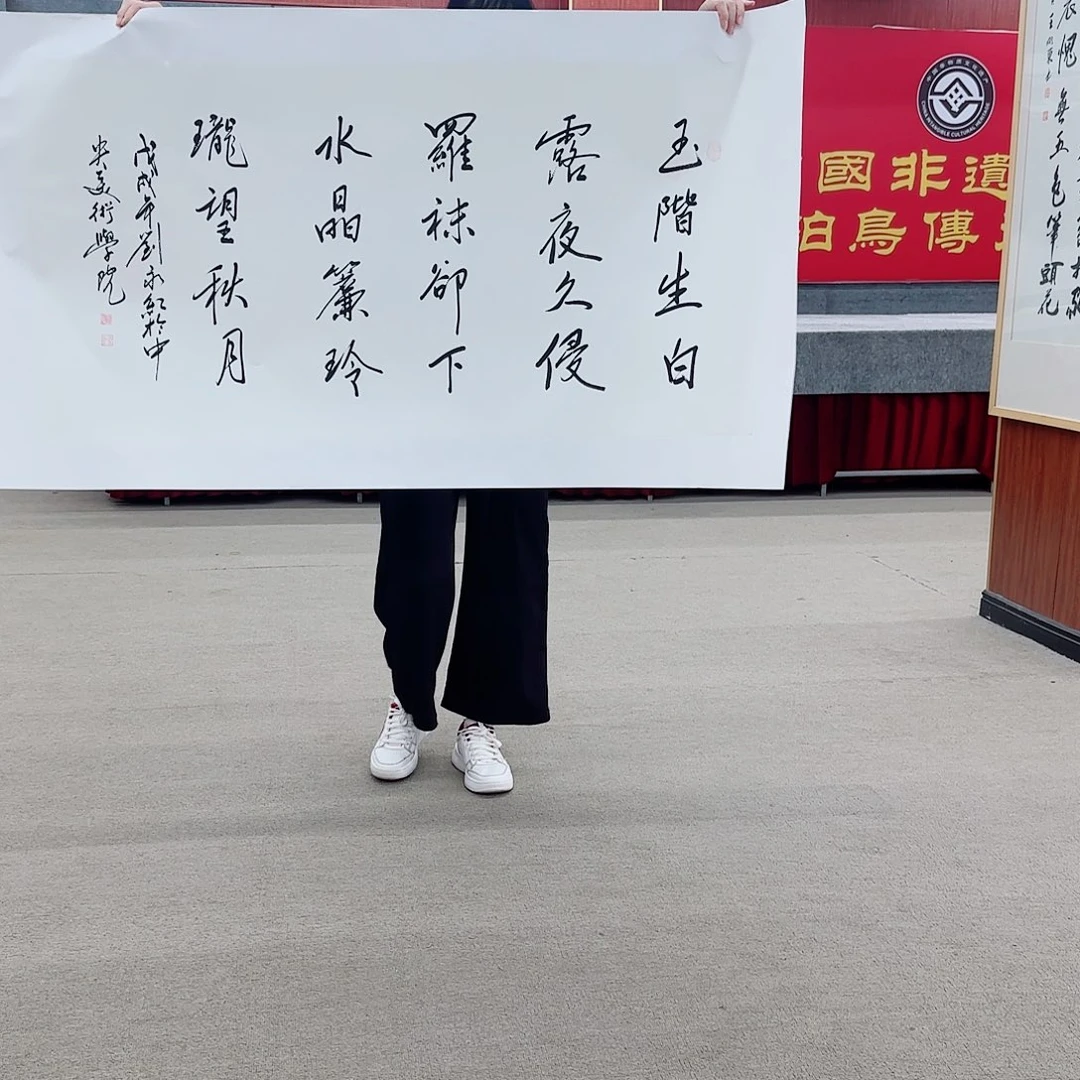 玉階生白
露夜久侵
羅袜卻下
水晶簾玲
瓏望秋月
戊戌年劉永紅於中
央美術學院
CHINA INTANGIBLE CULTURAL HERITAGE
國非遺
鳥傳
愧無五色筆頭花